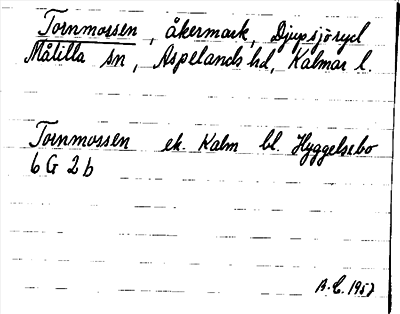 Tornmossen, åkermark, Djupsjöryd
Målilla sn, Aspelands hd, Kalmar l.
Tornmossen ek. Kalm bl. Hyggelsebo
6 G 2 b
B.C. 1957